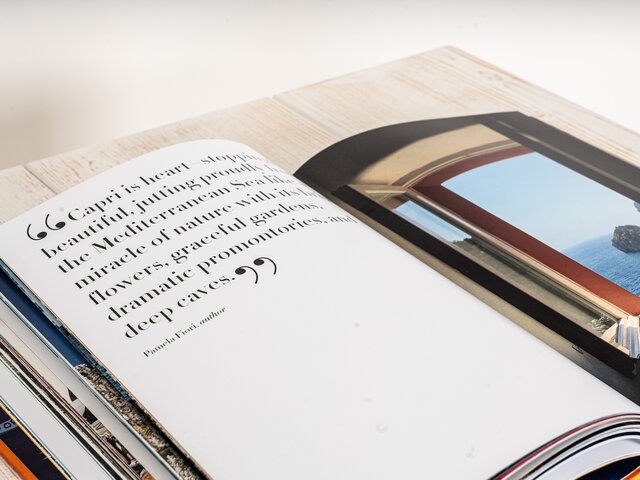 “Capri is heart-stopping
beautiful, jutting proudly
the Mediterranean Sea like
miracle of nature with its
flowers, graceful gardens,
dramatic promontories, and
deep caves.”
Pamela Fiori, author